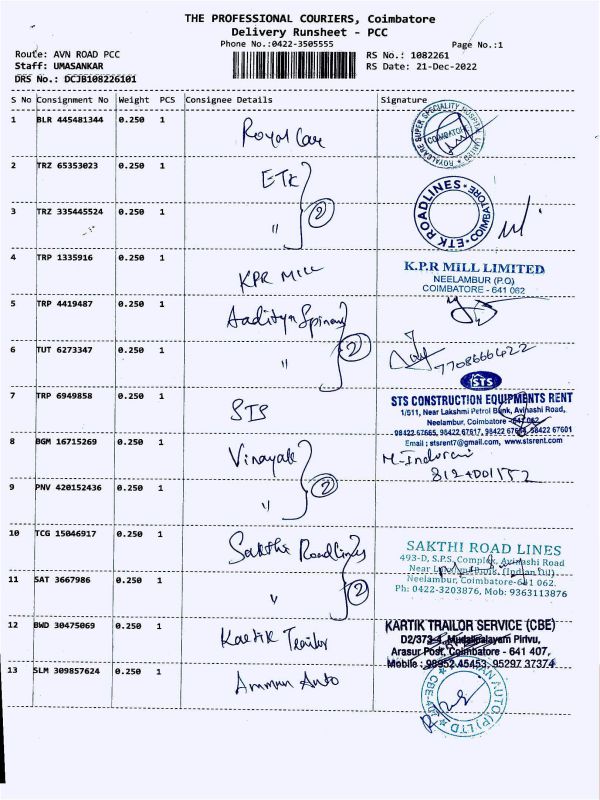 THE PROFESSIONAL COURIERS, Coimbatore
Delivery Runsheet - PCC
Phone No.:0422-3505555
Page No.:1
Route: AVN ROAD PCC
RS No.: 1082261
Staff: UMASANKAR
RS Date: 21-Dec-2022
DRS No.: DCJB108226101
S No Consignment No Weight PCS Consignee Details Signature
1 BLR 445481344 0.250 1 Royal Care
ROYALCARE SUPER SPECIALITY HOSPITAL LIMITED COIMBATORE
2 TRZ 65353023 0.250 1 ETK
3 TRZ 335445524 0.250 1 " 2
ETK ROADLINES COIMBATORE
4 TRP 1335916 0.250 1 KPR MILL
K.P.R MILL LIMITED
NEELAMBUR (P.O)
COIMBATORE - 641 062
5 TRP 4419487 0.250 1 Aaditya Spinner
6 TUT 6273347 0.250 1 " 2
7708666422
7 TRP 6949858 0.250 1 STS
STS
STS CONSTRUCTION EQUIPMENTS RENT
1/511, Near Lakshmi Petrol Bunk, Avinashi Road,
Neelambur, Coimbatore - 641 062
98422 67665, 98422 67617, 98422 98422 67601
Email : stsrent7@gmail.com, www.stsrent.com
8 BGM 16715269 0.250 1 Vinayak
9 PNV 420152436 0.250 1 " 2
10 TCG 15046917 0.250 1 Sakthi Roadlines
11 SAT 3667986 0.250 1 " 2
SAKTHI ROAD LINES
493-D, S.P.S. Complex, Avinashi Road
Neelambur, Coimbatore-641 062.
Ph: 0422-3203876, Mob: 9363113876
12 BWD 30475069 0.250 1 Kartik Trailor
KARTIK TRAILOR SERVICE (CBE)
D2/373-4, Mudalipalayam Pirivu,
Arasur Post, Coimbatore - 641 407,
Mobile : 98952 45453, 95297 37374
13 SLM 309857624 0.250 1 Amman Auto